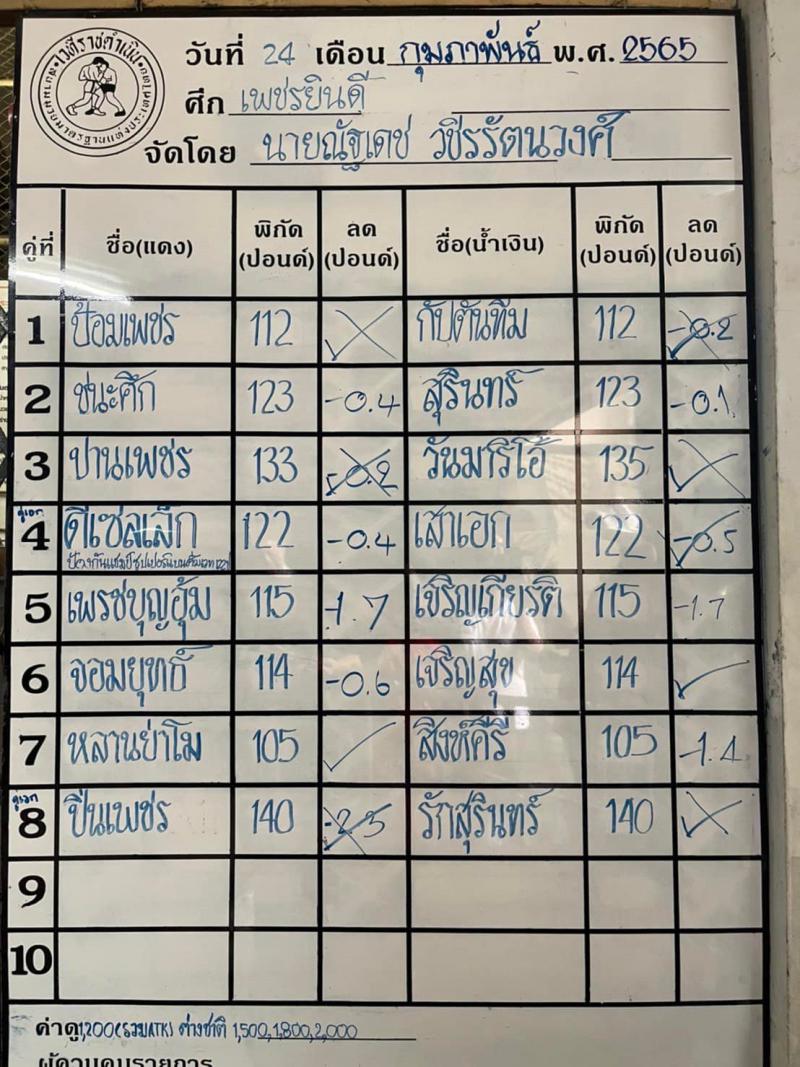 เวทีราชดำเนิน
วันที่ 24 เดือน กุมภาพันธ์ พ.ศ. 2565
ศึก เพชรยินดี
จัดโดย นายณัฐเดช วชิรรัตนวงศ์
คู่ที่ ชื่อ(แดง) พิกัด (ปอนด์) ลด (ปอนด์) ชื่อ(น้ำเงิน) พิกัด (ปอนด์) ลด (ปอนด์)
1 ป้อมเพชร 112 กัปตันทีม 112 -0.2
2 ชนะศึก 123 -0.4 สุรินทร์ 123 -0.1
3 ปานเพชร 133 -0.2 วันมาริโอ้ 135
คู่เอก
4 ดีเซลเล็ก 122 -0.4 เสาเอก 122 -0.5
5 เพรชบุญอุ้ม 115 -1.7 เจริญเกียรติ 115 -1.7
6 จอมยุทธ์ 114 -0.6 เจริญสุข 114
7 หลานย่าโม 105 สิงห์คีรี 105 -1.4
คู่เอก
8 ปิ่นเพชร 140 -2.5 รักสุรินทร์ 140
9
10
ค่าดู 1,200 (รวมATK) ต่างชาติ 1,500,1,800,2,000
ผู้ควบคุมรายการ